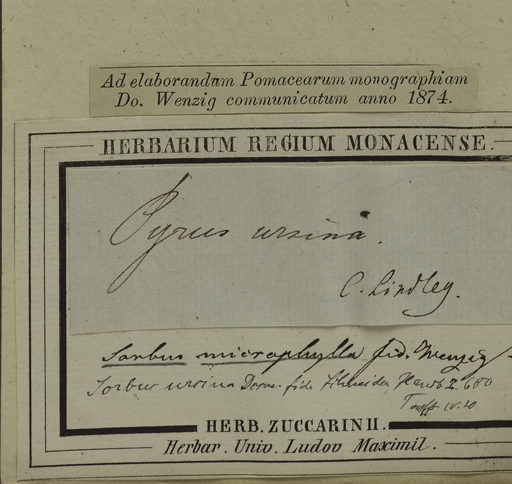 Ad elaborandum Pomacearum monographiam
Do. Wenzig communicatum anno 1874.
HERBARIUM REGIUM MONACENSE.
Pyrus ursina.
C. Lindley.
Sorbus microphylla fid. Wenzig
Sorbus ursina Decne fide Schneider, Handb I. 680
HERB. ZUCCARINII.
Herbar. Univ. Ludov Maximil.